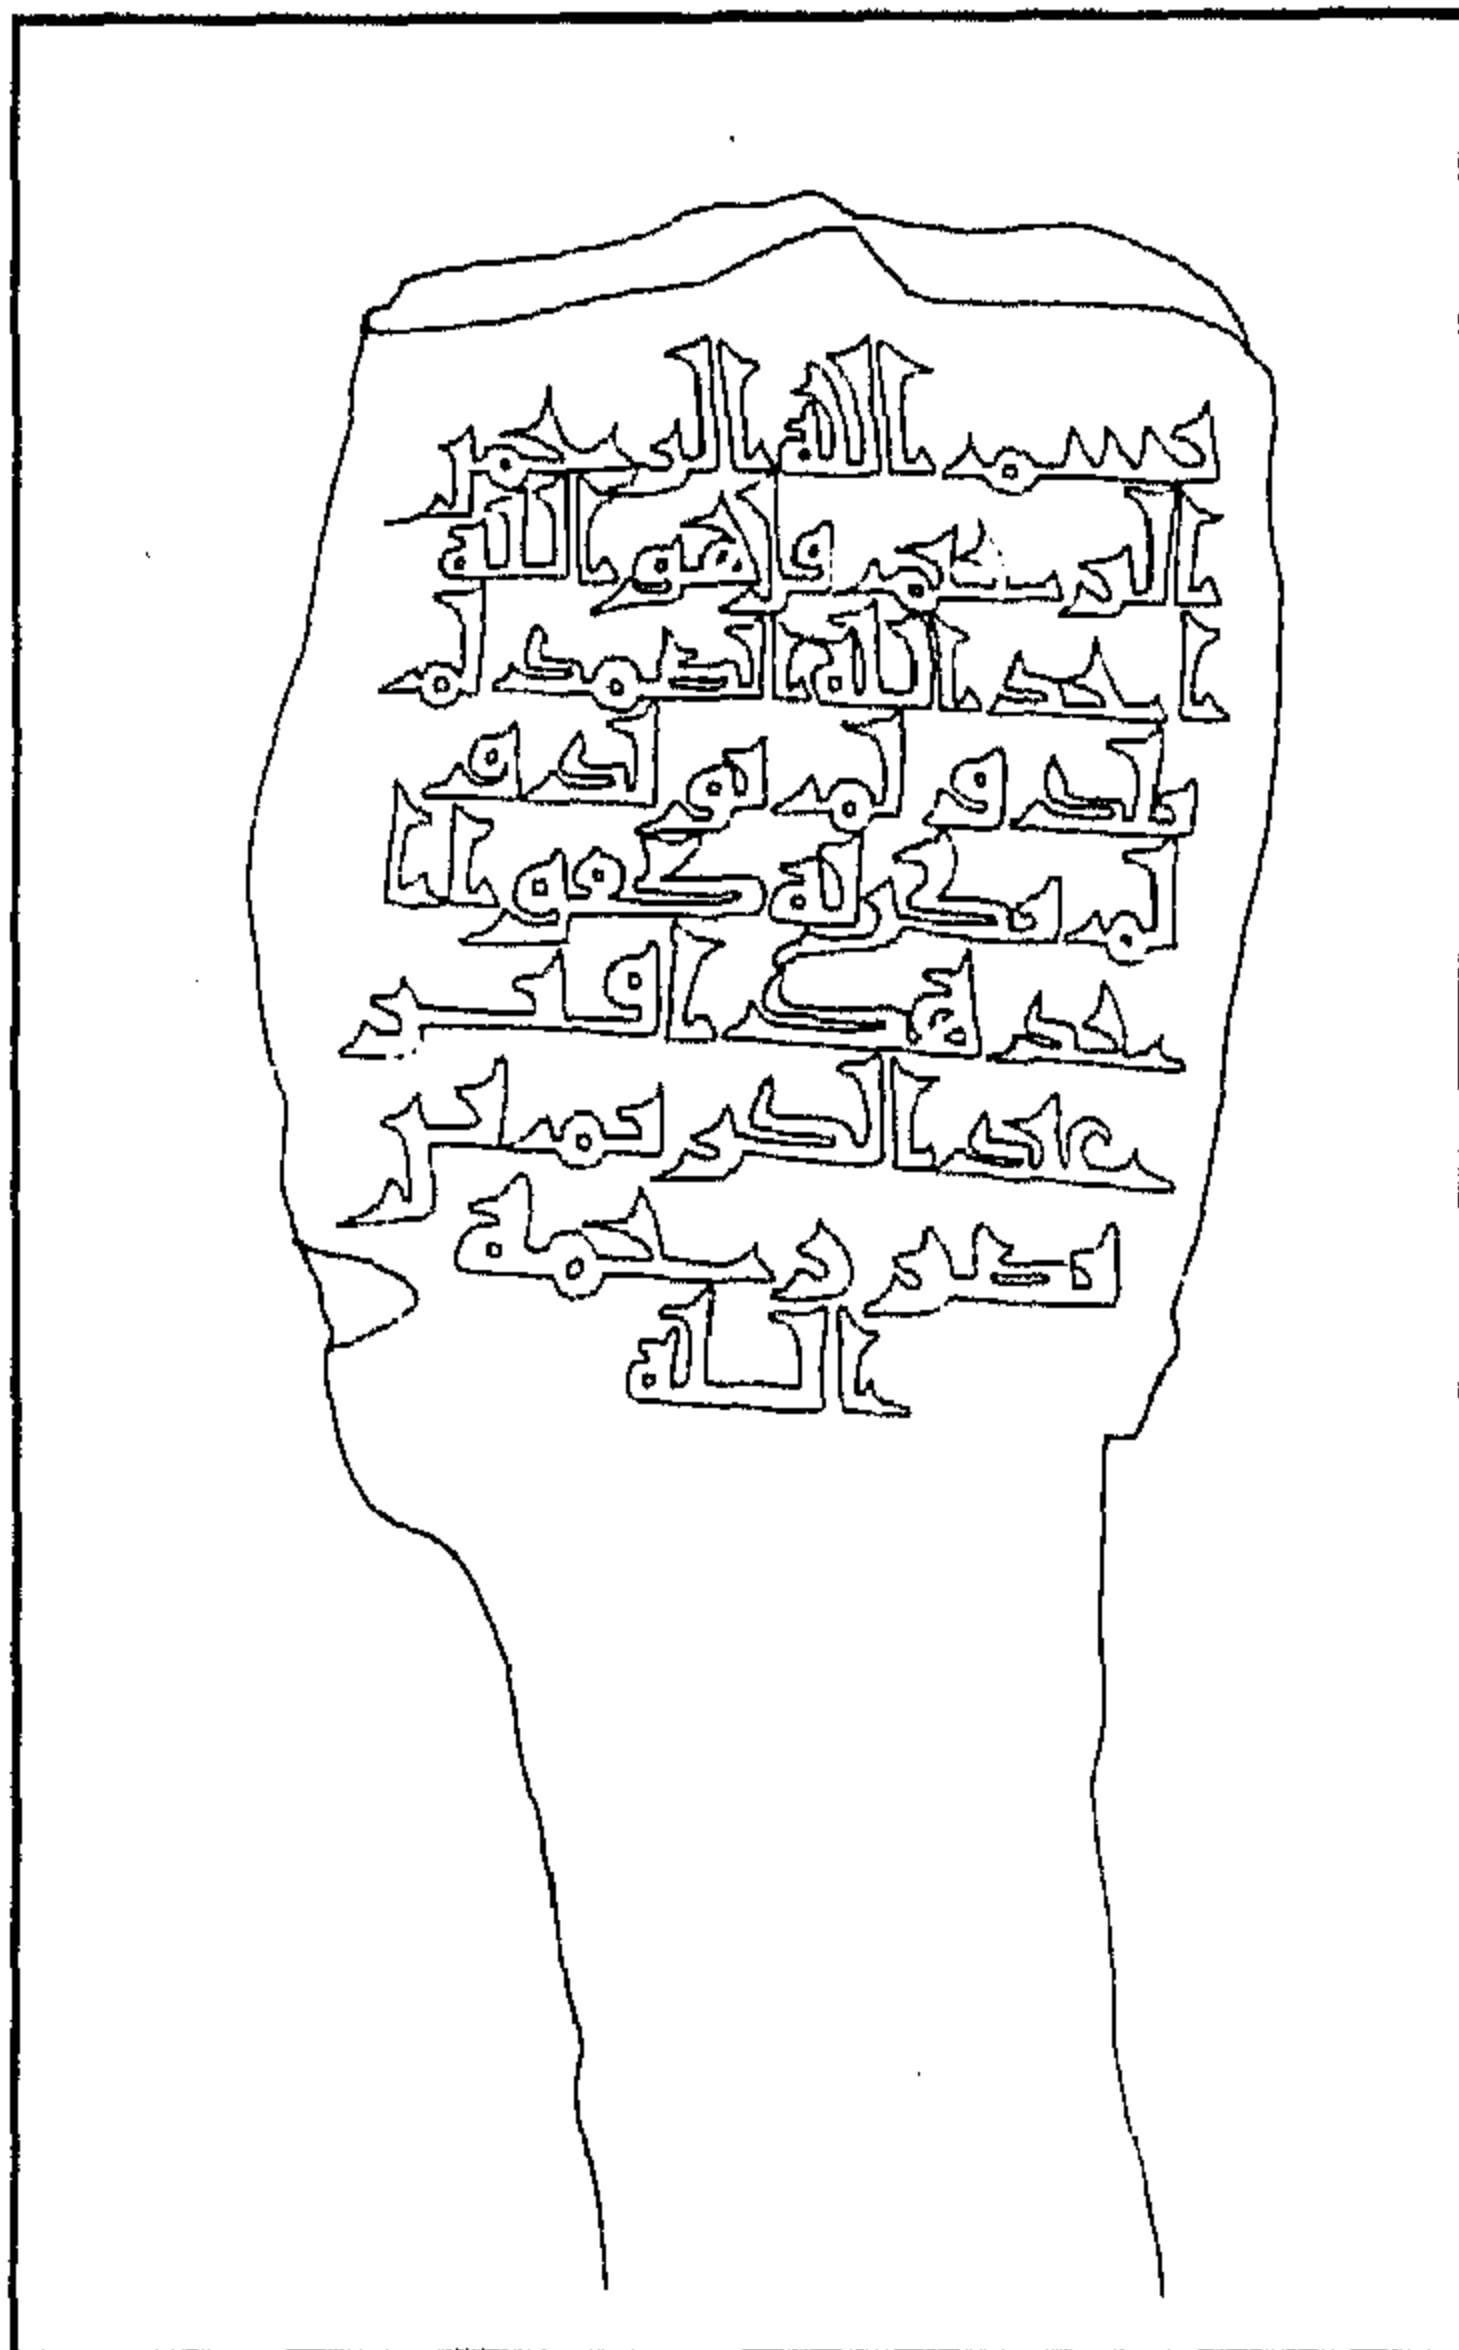 بسم الله الرحمن
الرحيم قل هو الله
احد الله الصمد لم
يلد ولم يولد و
لم يكن له كفوا ا
حد هذا قبر
عبد الكريم بن
رحمه
الله